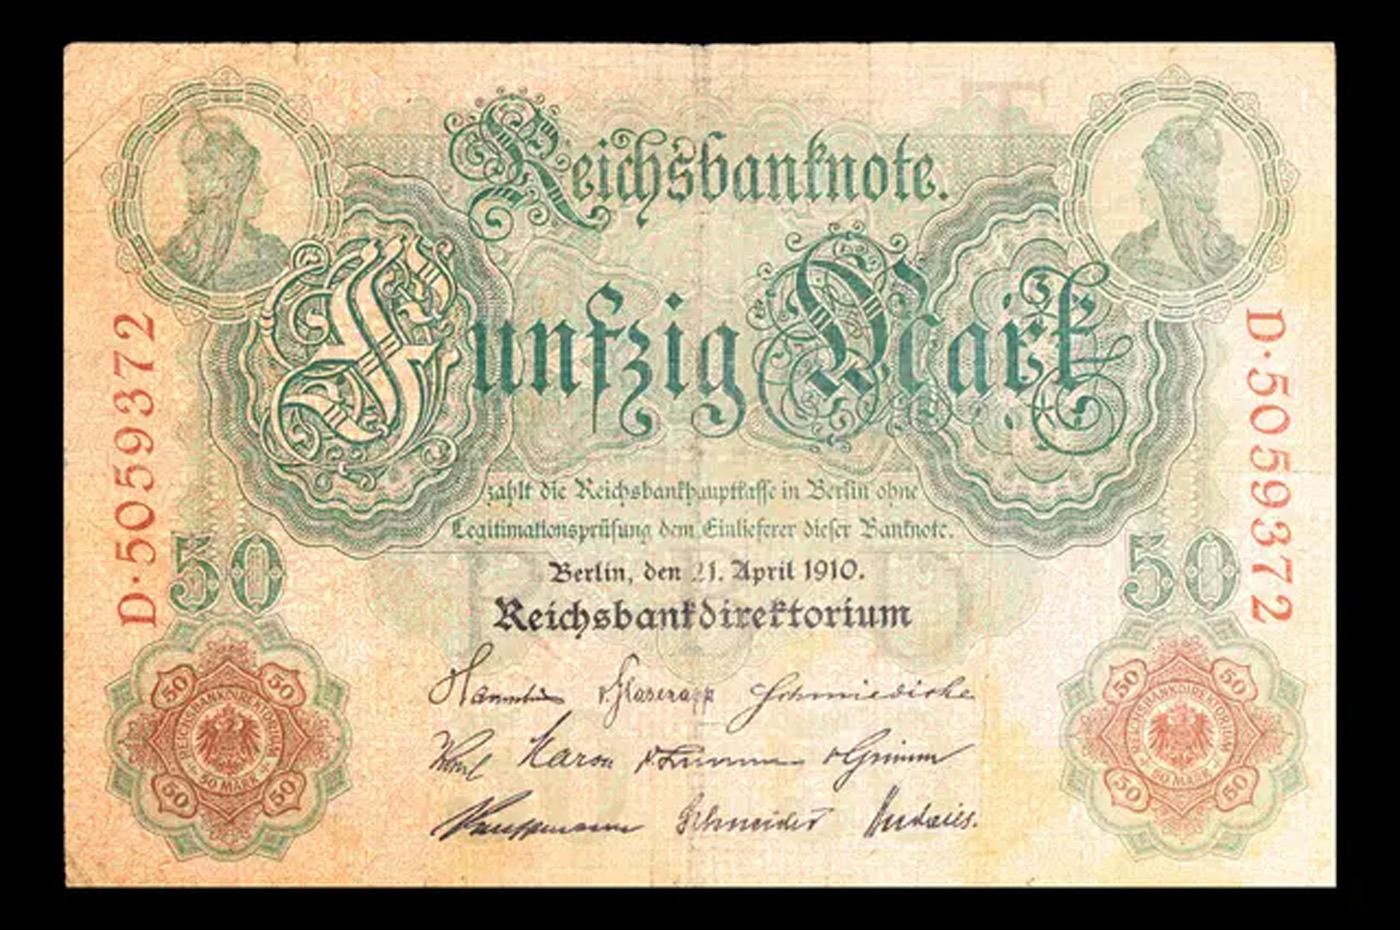 Reichsbanknote.
Fünfzig Mark
zahlt die Reichsbankhauptkasse in Berlin ohne
Legitimationsprüfung dem Einlieferer dieser Banknote.
Berlin, den 21. April 1910.
Reichsbankdirektorium
v. Glasenapp Schmiedicke
Korn v. Grimm
Kauffmann Schneider Budczies.
D·5059372
D·5059372
50
50
50 50
REICHSBANKDIREKTORIUM
50 MARK
50 50
50 50
REICHSBANKDIREKTORIUM
50 MARK
50 50